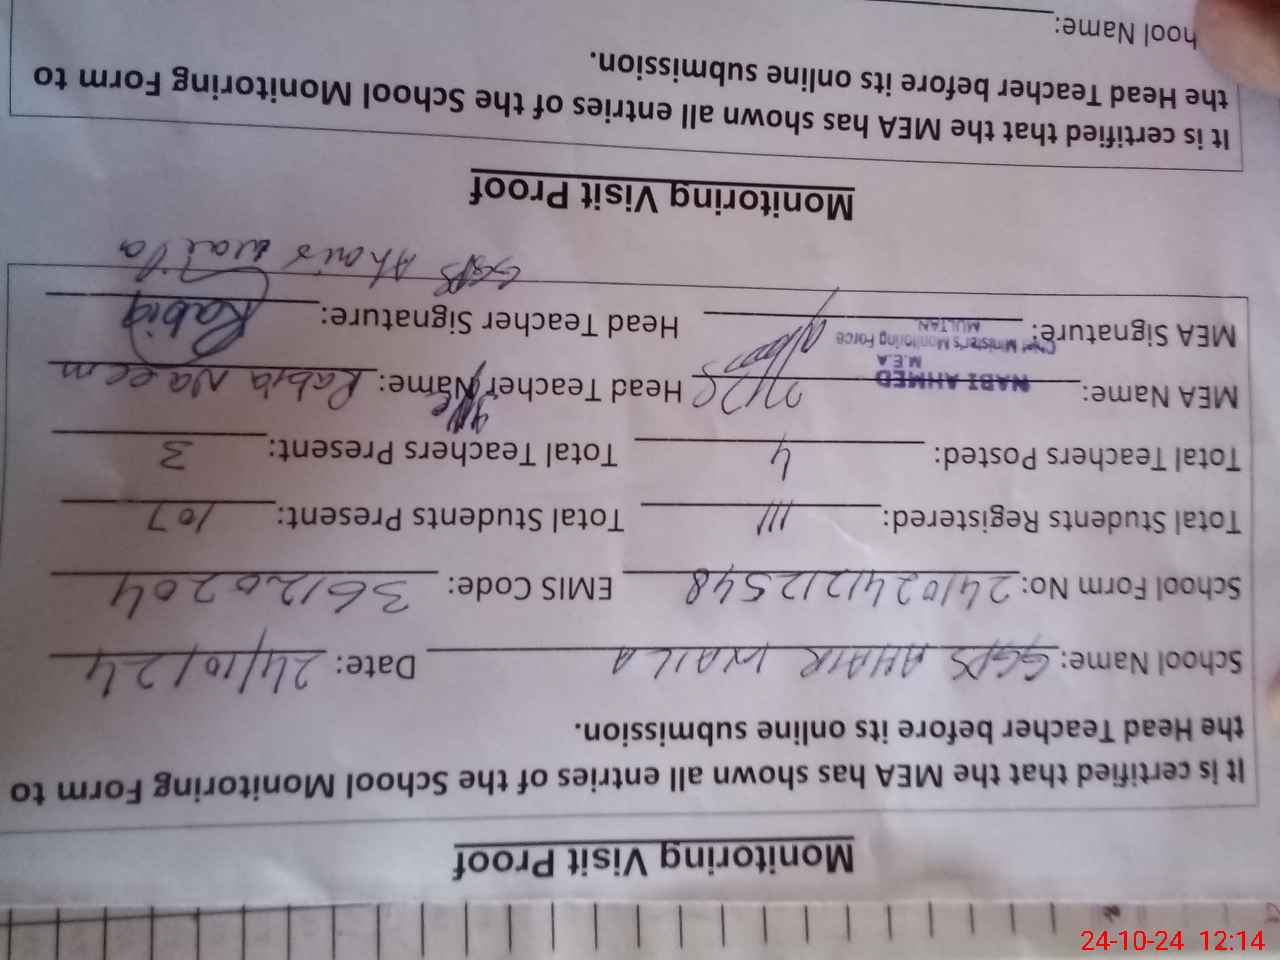 Monitoring Visit Proof
It is certified that the MEA has shown all entries of the School Monitoring Form to
the Head Teacher before its online submission.
School Name: GGPS AHAIR WAILA Date: 24/10/24
School Form No: 2410241212548 EMIS Code: 36120204
Total Students Registered: 111 Total Students Present: 107
Total Teachers Posted: 4 Total Teachers Present: 3
MEA Name: NABI AHMED Head Teacher Name: Rabia Naeem
M.E.A
Chief Minister's Monitoring Force
MULTAN
MEA Signature: Head Teacher Signature: Rabia
GGPS
Monitoring Visit Proof
It is certified that the MEA has shown all entries of the School Monitoring Form to
the Head Teacher before its online submission.
hool Name:
24-10-24 12:14